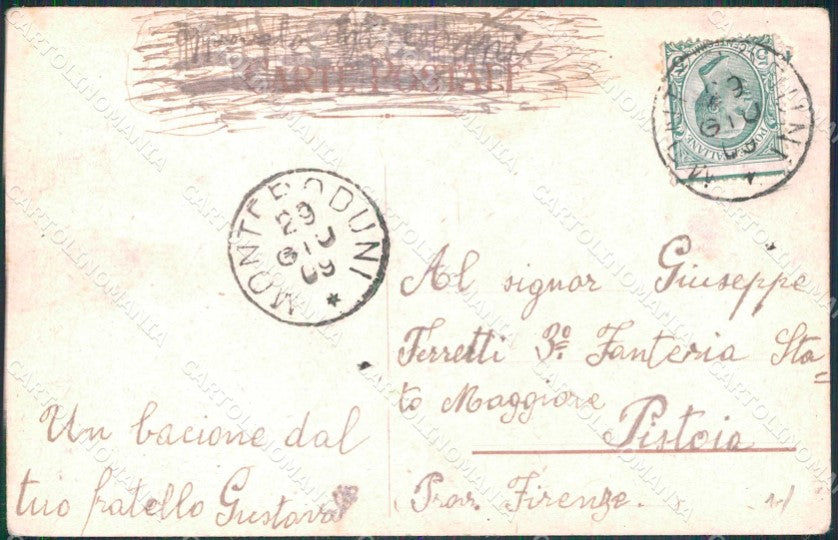 CARTE POSTALE
POSTE ITALIANE
MONTERODUNI
29
GIU
09
Al signor Giuseppe
Ferretti 3º Fanteria Sta=
to Maggiore
Pistoia
Prov. Firenze.
Un bacione dal
tuo fratello Gustavo
CARTOLINOMANIA